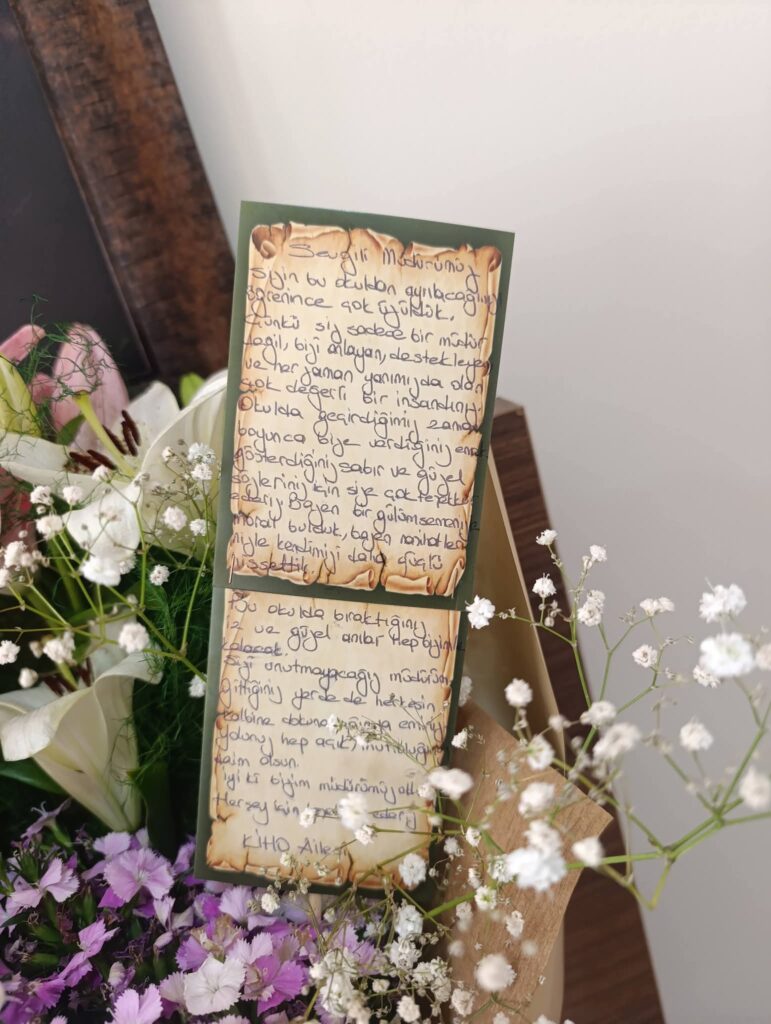 Sevgili Müdürümüz
Sizin bu okuldan ayrılacağınızı
öğrenince çok üzüldük.
Çünkü siz sadece bir müdür
değil, bizi anlayan, destekleyen
ve her zaman yanımızda olan
çok değerli bir insandınız
Okulda geçirdiğimiz zaman
boyunca bize verdiğiniz emek
gösterdiğiniz sabır ve güzel
sözleriniz için size çok teşekkür
ederiz. Bazen bir gülümsemenizle
moral bulduk, bazen nasihatleri
nizle kendimizi daha güçlü
hissettik.
Bu okulda bıraktığınız
iz ve güzel anılar hep bizimle
kalacak.
Sizi unutmayacağız müdürüm
gittiğiniz yerde de herkesin
kalbine
yolunuz hep açık, mutluluğunuz
daim olsun.
İyi ki bizim müdürümüz
Herşey için ederiz
KİHO Ailesi